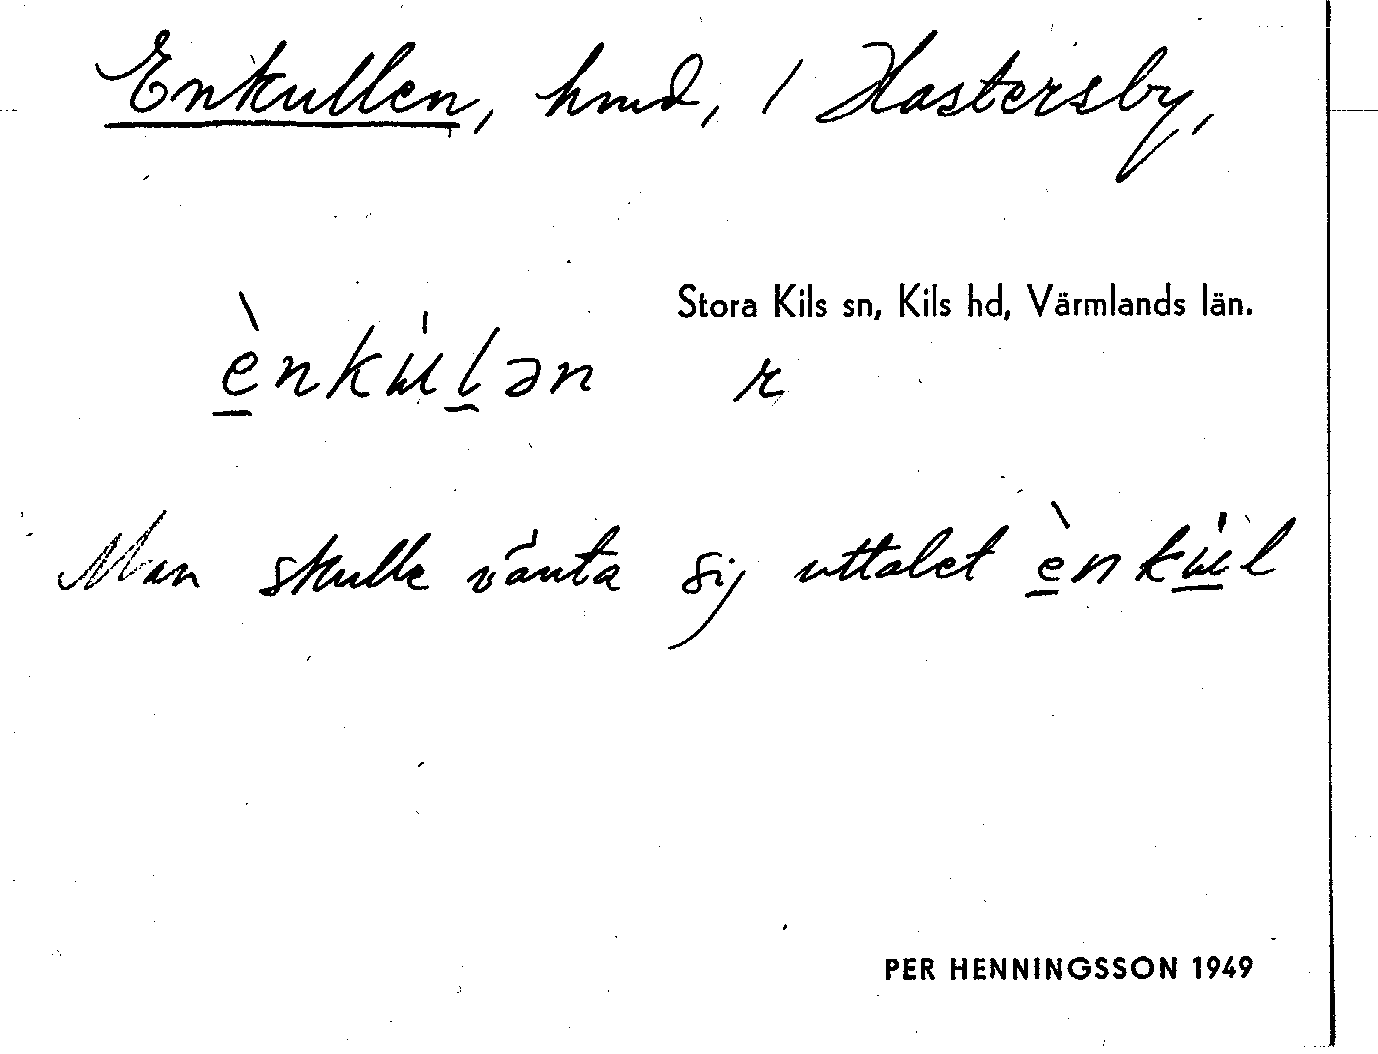 Enkullen, hmd, / Hastersby,
Stora Kils sn, Kils hd, Värmlands län.
è̲nkúl̲ən r
Man skulle vänta sig uttalet è̲nkú̲l
PER HENNINGSSON 1949